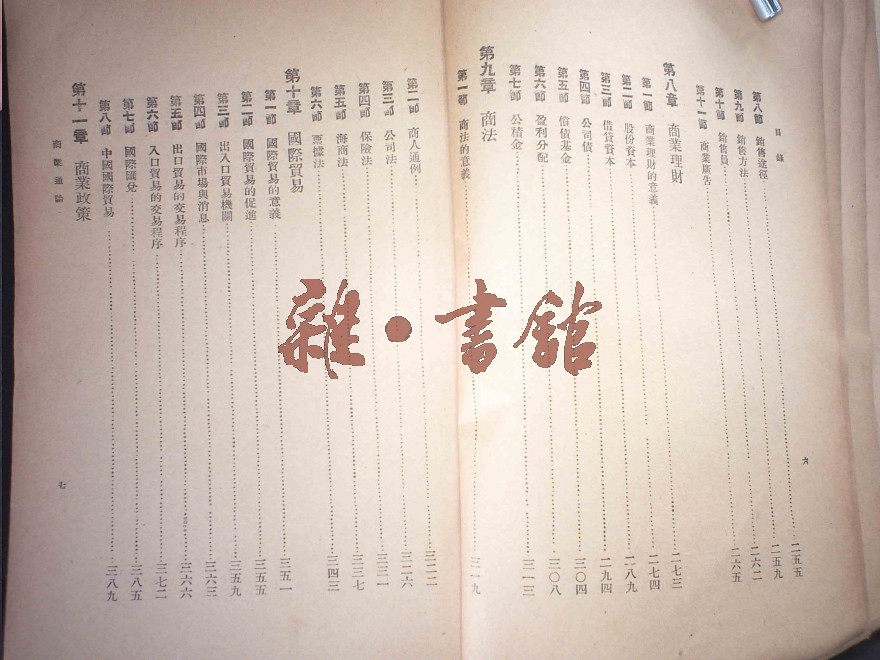 目錄
第八節 銷售途徑……二五五
第九節 銷售方法……二五九
第十節 銷售員……二六二
第十一節 商業廣告……二六五
第八章 商業理財
第一節 商業理財的意義……二七三
第二節 股份資本……二七四
第三節 借貸資本……二八九
第四節 公司債……二九四
第五節 償債基金……三〇四
第六節 盈利分配……三〇八
第七節 公積金……三一三
第九章 商法
第一節 商法的意義……三一九
六
第二節 商人通例……三二二
第三節 公司法……三二六
第四節 保險法……三三一
第五節 海商法……三三七
第六節 票據法……三四三
第十章 國際貿易
第一節 國際貿易的意義……三五一
第二節 國際貿易的促進……三五五
第三節 出入口貿易機關……三五九
第四節 國際市場與消息……三六三
第五節 出口貿易的交易程序……三六六
第六節 入口貿易的交易程序……三七二
第七節 國際匯兌……三八五
第八節 中國國際貿易……三八九
第十一章 商業政策
商業通論
七
雜·書舘